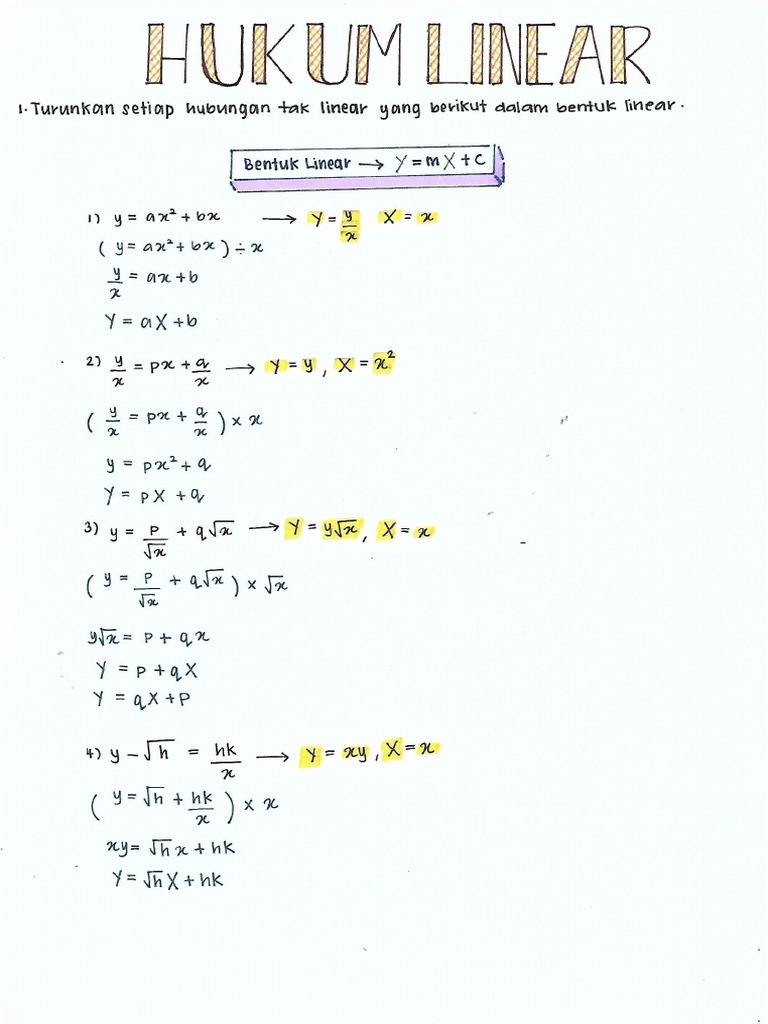 HUKUM LINEAR
1. Turunkan setiap hubungan tak linear yang berikut dalam bentuk linear.
Bentuk Linear → Y = mX + C
1) y = ax² + bx → Y = y/x X = x
(y = ax² + bx) ÷ x
y/x = ax + b
Y = aX + b
2) y/x = px + q/x → Y = y, X = x²
(y/x = px + q/x) × x
y = px² + q
Y = pX + q
3) y = p/√x + q√x → Y = y√x, X = x
(y = p/√x + q√x) × √x
y√x = p + qx
Y = p + qX
Y = qX + p
4) y − √h = hk/x → Y = xy, X = x
(y = √h + hk/x) × x
xy = √h x + hk
Y = √h X + hk